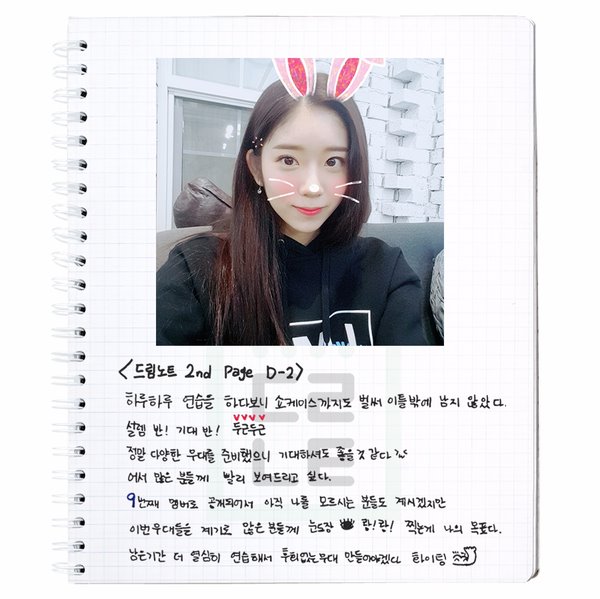 <드림노트 2nd Page D-2>
하루하루 연습을 하다보니 쇼케이스까지도 벌써 이틀밖에 남지 않았다.
설렘 반! 기대 반! 두근두근
정말 다양한 무대를 준비했으니 기대하셔도 좋을것 같다
어서 많은 분들께 빨리 보여드리고 싶다.
9번째 멤버로 공개되어서 아직 나를 모르시는 분들도 계시겠지만
이번무대들을 계기로 많은분들께 눈도장 쾅!쾅! 찍는게 나의 목표다.
남은기간 더 열심히 연습해서 후회없는무대 만들어야겠다 화이팅